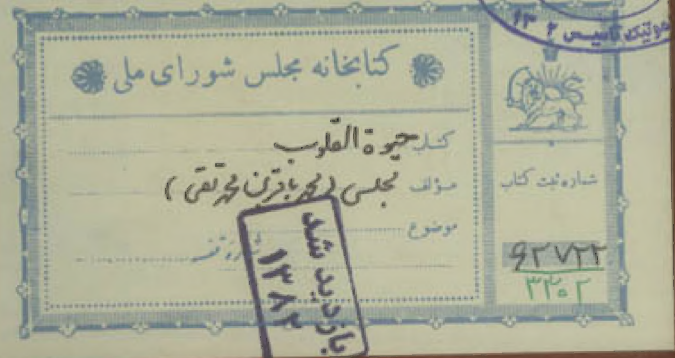 کتابخانه مجلس شورای ملی
کتاب حیوة القلوب
مؤلف مجلسی (محمد باقر بن محمد تقی)
موضوع
شماره ثبت کتاب
۶۲۷۲۲
۳۳۰۲
بازدید شد
۱۳۸۲